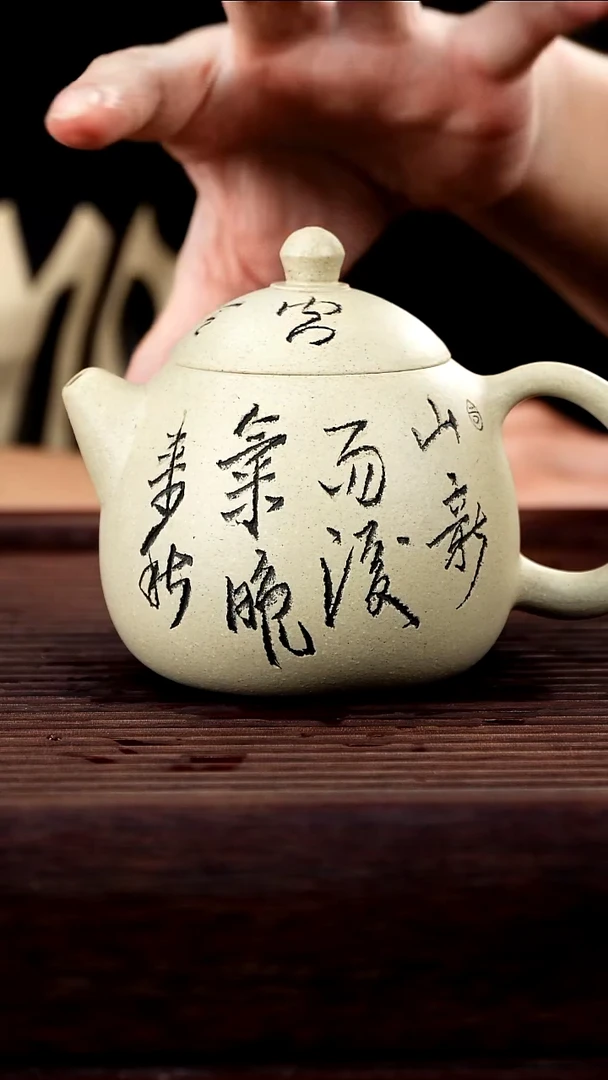 空
山新
雨後
氣晚
來秋